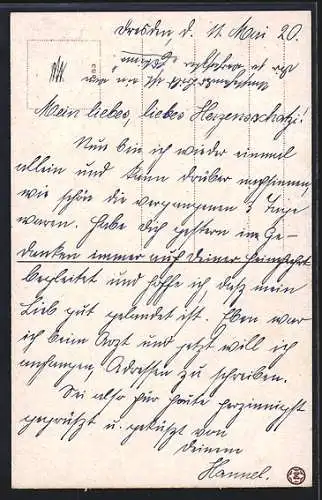 Dresden, d. 11. Mai 20.
Mein liebes, liebes Herzensschatzi!
Nun bin ich wieder einmal
allein und kann drüber nachsinnen,
wie schön die vergangenen 3 Tage
waren. Habe Dich gestern im Ge-
danken immer auf Deiner Heimfahrt
begleitet und hoffe ich, daß mein
Lieb gut gelandet ist. Eben war
ich beim Arzt und jetzt will ich
anfangen, Adressen zu schreiben.
Sei also für heute herzinnigst
gegrüßt und geküßt von
Deinem
Hannel.